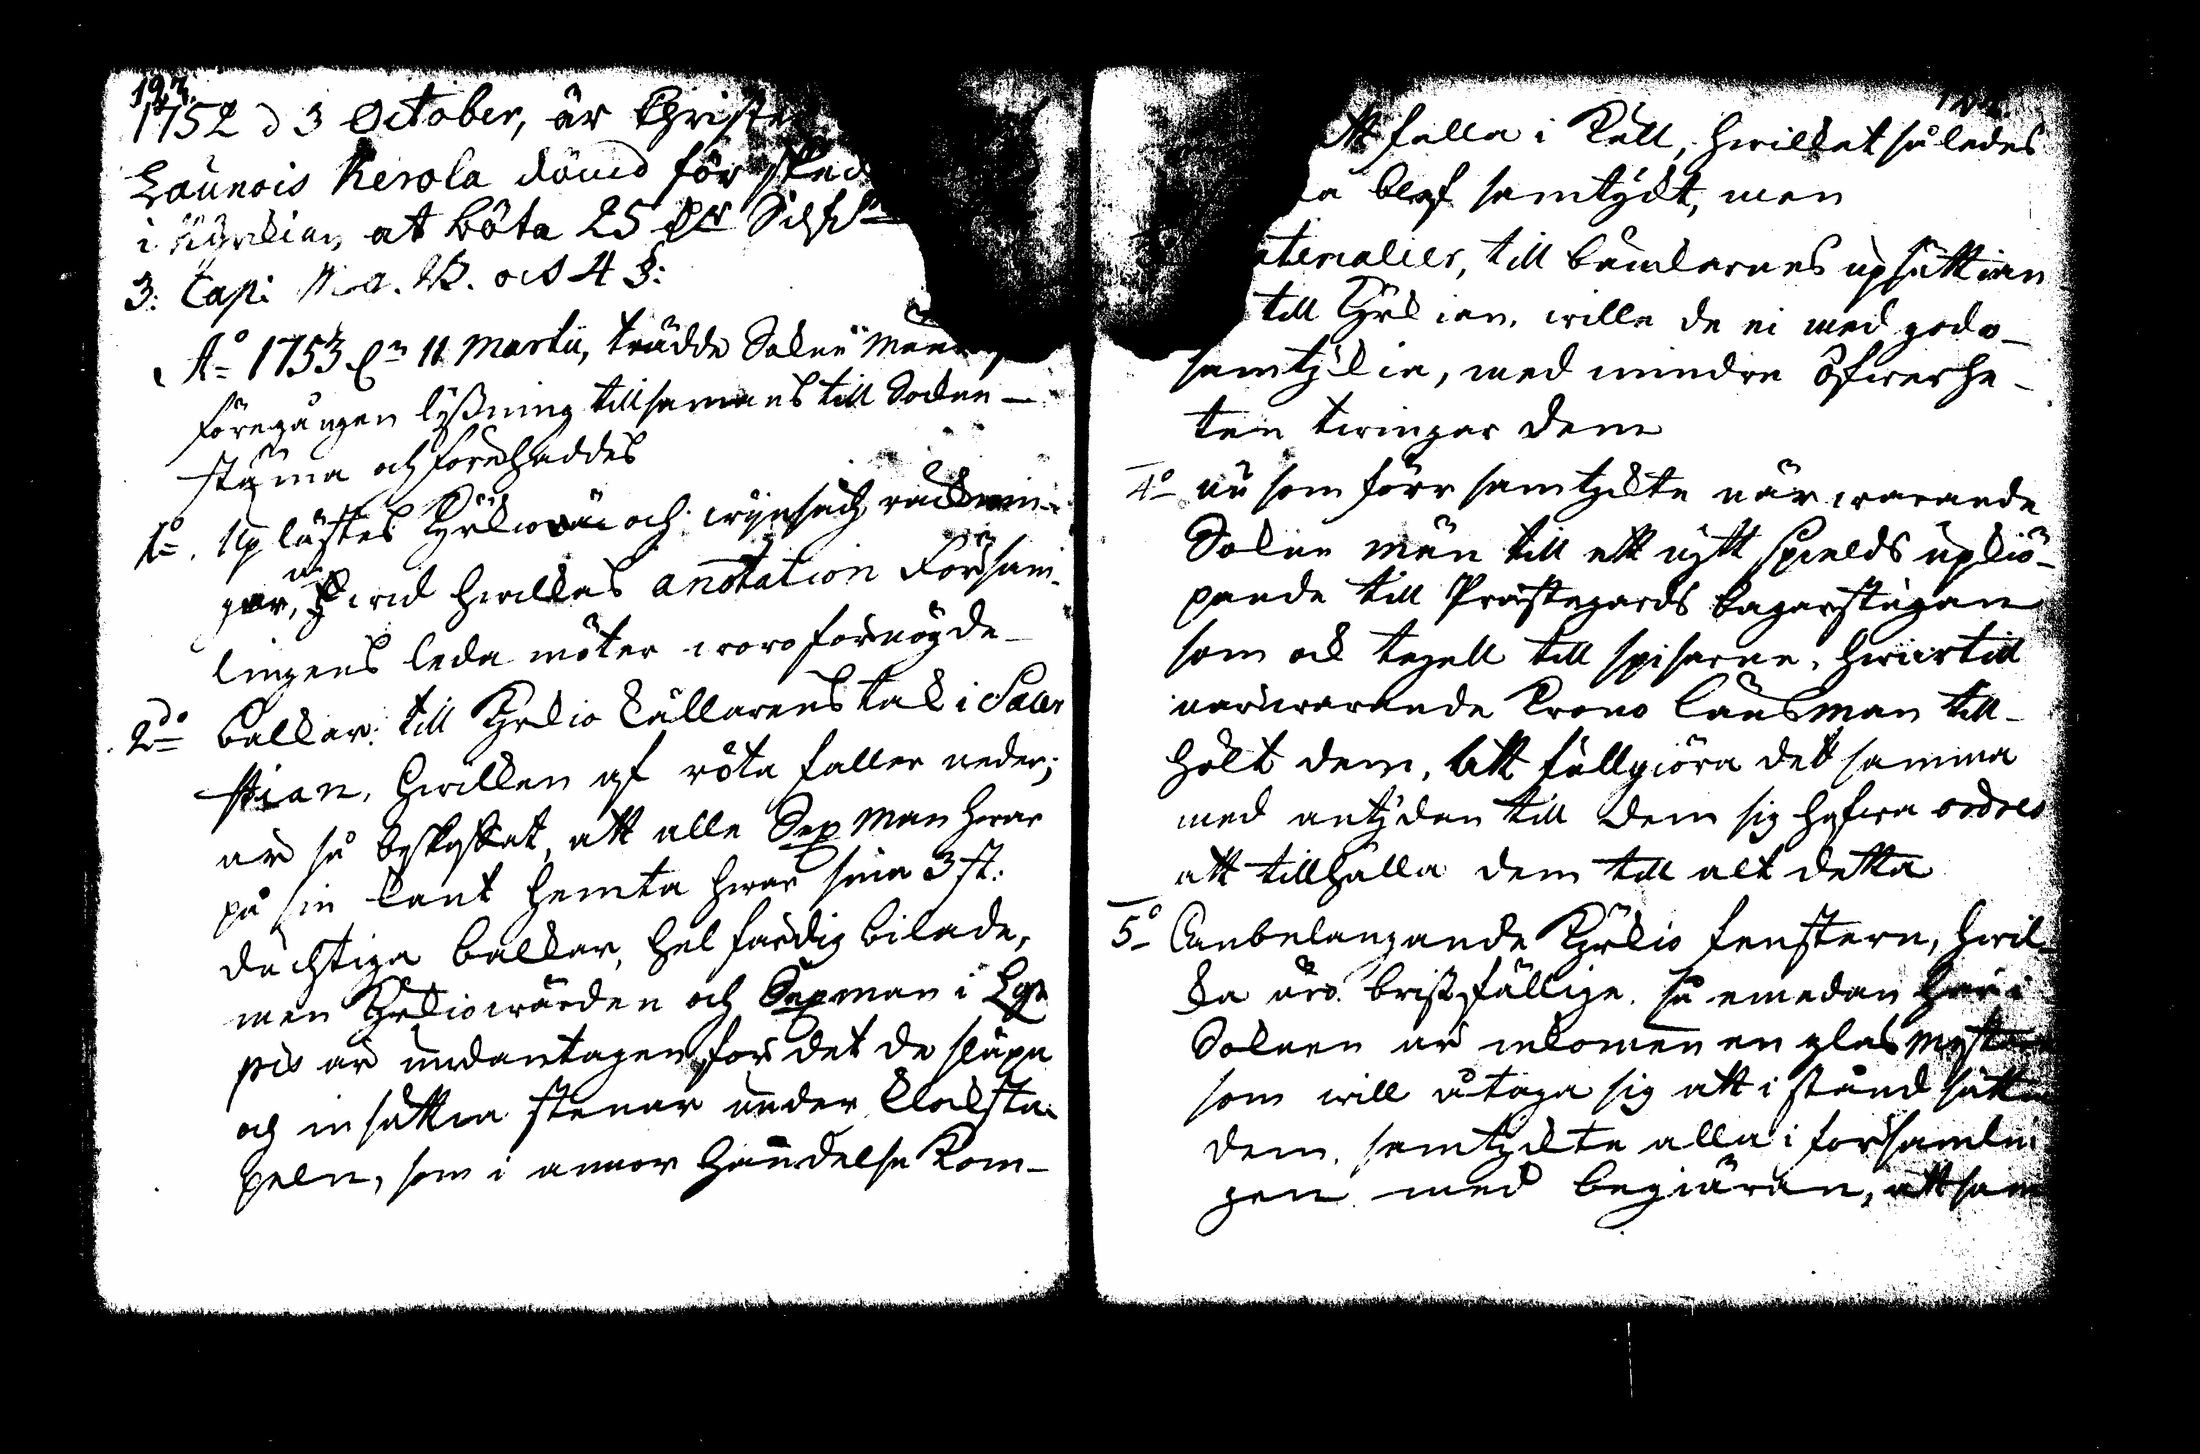 123.
1752 d 3 October, är Christe
Launois Kerola dömd för
i Kyrckian at böta 25 dlr Silfr
3: Cap: M. B. och 4 §:
A:o 1753 d. 11 Martii, trädde Sokne män
föregången lyssning tillsamans till Sockne-
stäma och förehaddes
1:o. Uplästes Kyrkio och räknin-
gar, wid hwilkas annotation Försam-
lingens ledamöter woro förnögde
2:do Balkar till Kyrkio källarens tak i Sacer
stian, hwilken af röta faller neder;
är så beskaffat, att alle Sexman hwar
på sin kant hemta hwar sina 3 st:
dûchtiga balkar, hel färdig bilade,
men Kyrkiowärden och Sexman i
pis är undantagen för det de släpa
och insättia stenar under Klocksta-
peln, som i annor händelse kom-
att falla i Källr, hwilket således
blef samtÿckt, men
materialier, till bänckarnes upsättian
till Kyrkian, wille de ei med godo
samtyckia, med mindre Öfwerhe-
ten twingar dem
4:o nu som förr samtyckte närwarande
Sokne män till ett nytt Spields upkiö-
pande till Prästegårds bagarstugan
som ock tegell till spisarne, hwartill
närwarande Crono Länsman till-
hölt dem, att fullgiöra det samma
med antyden till dem sig hafwa ordres
att tillhålla dem till alt detta
5:o Anbelangande Kyrkio fenstern, hwil-
ka äro bristfällige. så emedan här i
Soknen är inkommen en glasmästare
som will åtaga sig att i stånd sättia
dem, samtyckte alla i församlin
gen med begiäran, att sam